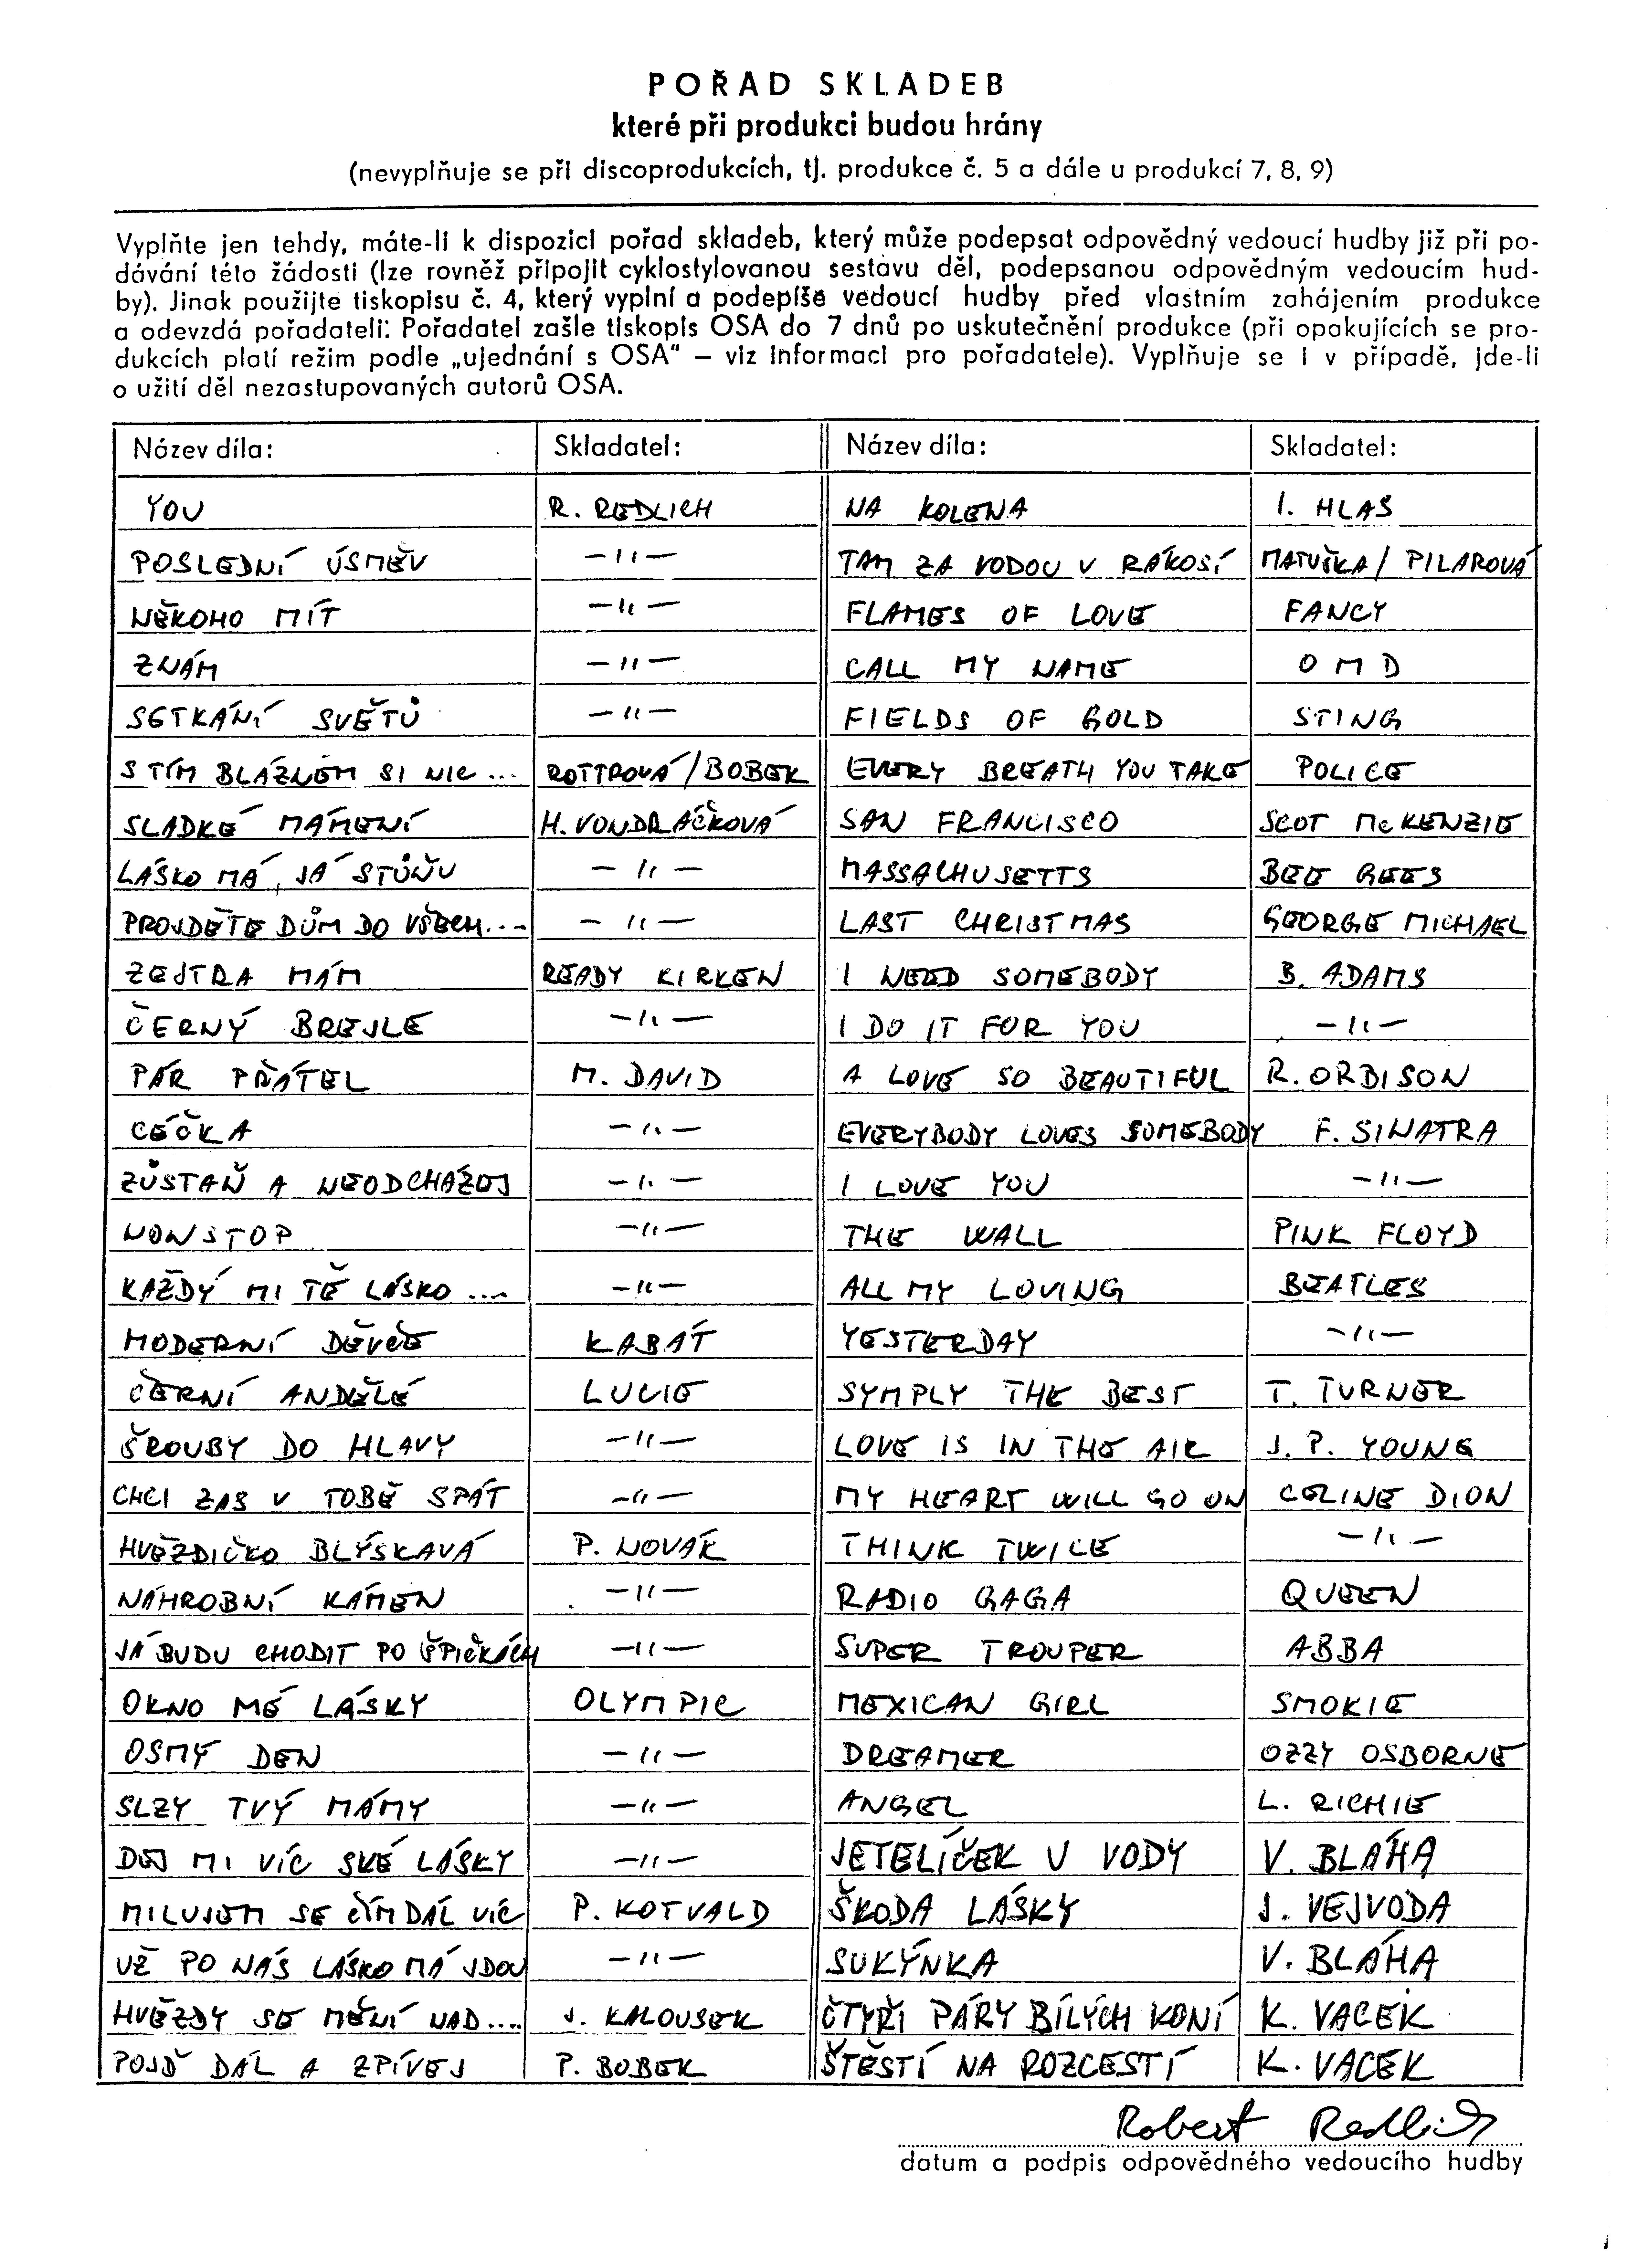 POŘAD SKLADEB
které při produkci budou hrány
(nevyplňuje se při discoprodukcích, tj. produkce č. 5 a dále u produkcí 7, 8, 9)
Vyplňte jen tehdy, máte-li k dispozici pořad skladeb, který může podepsat odpovědný vedoucí hudby již při po-
dávání této žádosti (lze rovněž připojit cyklostylovanou sestavu děl, podepsanou odpovědným vedoucím hud-
by). Jinak použijte tiskopisu č. 4, který vyplní a podepíše vedoucí hudby před vlastním zahájením produkce
a odevzdá pořadateli: Pořadatel zašle tiskopis OSA do 7 dnů po uskutečnění produkce (při opakujících se pro-
dukcích platí režim podle „ujednání s OSA“ – viz Informaci pro pořadatele). Vyplňuje se i v případě, jde-li
o užití děl nezastupovaných autorů OSA.
Název díla: Skladatel: Název díla: Skladatel:
YOU R. REDLICH NA KOLENA I. HLAS
POSLEDNÍ ÚSMĚV –"– TAM ZA VODOU V RÁKOSÍ MATUŠKA / PILAROVÁ
NĚKOHO MÍT –"– FLAMES OF LOVE FANCY
ZNÁM –"– CALL MY NAME O M D
SETKÁNÍ SVĚTŮ –"– FIELDS OF GOLD STING
S TÍM BLÁZNEM SI NIC ... ROTTROVÁ/BOBEK EVERY BREATH YOU TAKE POLICE
SLADKÉ MÁMENÍ H. VONDRÁČKOVÁ SAN FRANCISCO SCOT McKENZIE
LÁSKO MÁ, JÁ STŮŇU –"– MASSACHUSETTS BEE GEES
PROJDĚTE DŮM DO VŠECH... –"– LAST CHRISTMAS GEORGE MICHAEL
ZEJTRA MÁM READY KIRKEN I NEED SOMEBODY B. ADAMS
ČERNÝ BREJLE –"– I DO IT FOR YOU –"–
PÁR PŘÁTEL M. DAVID A LOVE SO BEAUTIFUL R. ORBISON
CÉČKA –"– EVERYBODY LOVES SOMEBODY F. SINATRA
ZŮSTAŇ A NEODCHÁZEJ –"– I LOVE YOU –"–
NONSTOP –"– THE WALL PINK FLOYD
KAŽDÝ MI TĚ LÁSKO .... –"– ALL MY LOVING BEATLES
MODERNÍ DĚVČE KABÁT YESTERDAY –"–
ČERNÍ ANDĚLÉ LUCIE SYMPLY THE BEST T. TURNER
ŠROUBY DO HLAVY –"– LOVE IS IN THE AIR J. P. YOUNG
CHCI ZAS V TOBĚ SPÁT –"– MY HEART WILL GO ON CELINE DION
HVĚZDIČKO BLÝSKAVÁ P. NOVÁK THINK TWICE –"–
NÁHROBNÍ KÁMEN –"– RADIO GAGA QUEEN
JÁ BUDU CHODIT PO ŠPIČKÁCH –"– SUPER TROUPER ABBA
OKNO MÉ LÁSKY OLYMPIC MEXICAN GIRL SMOKIE
OSMÝ DEN –"– DREAMER OZZY OSBORNE
SLZY TVÝ MÁMY –"– ANGEL L. RICHIE
DEJ MI VÍC SVÉ LÁSKY –"– JETELÍČEK U VODY V. BLÁHA
MILUJEM SE ČÍM DÁL VÍC P. KOTVALD ŠKODA LÁSKY J. VEJVODA
UŽ PO NÁS LÁSKO MÁ JDOU –"– SUKÝNKA V. BLÁHA
HVĚZDY SE MĚNÍ NAD.... J. KALOUSEK ČTYŘI PÁRY BÍLÝCH KONÍ K. VACEK
POJĎ DÁL A ZPÍVEJ P. BOBEK ŠTĚSTÍ NA ROZCESTÍ K. VACEK
Robert Redlich
datum a podpis odpovědného vedoucího hudby